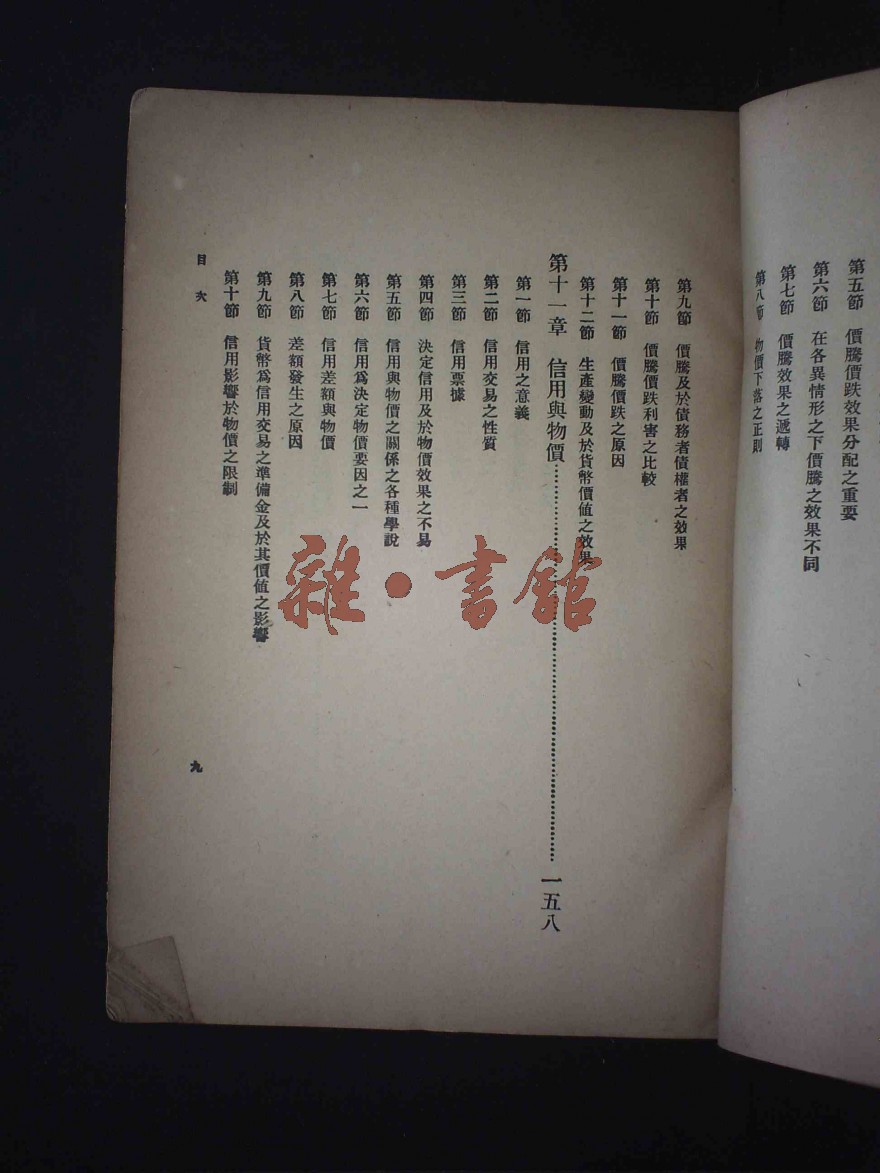 第五節 價騰價跌效果分配之重要
第六節 在各異情形之下價騰之效果不同
第七節 價騰效果之遞轉
第八節 物價下落之正則
第九節 價騰及於債務者債權者之效果
第十節 價騰價跌利害之比較
第十一節 價騰價跌之原因
第十二節 生產變動及於貨幣價值之效果
第十一章 信用與物價……一五八
第一節 信用之意義
第二節 信用交易之性質
第三節 信用票據
第四節 決定信用及於物價效果之不易
第五節 信用與物價之關係之各種學說
第六節 信用爲決定物價要因之一
第七節 信用差額與物價
第八節 差額發生之原因
第九節 貨幣爲信用交易之準備金及於其價值之影響
第十節 信用影響於物價之限制
目次
九
雜·書館